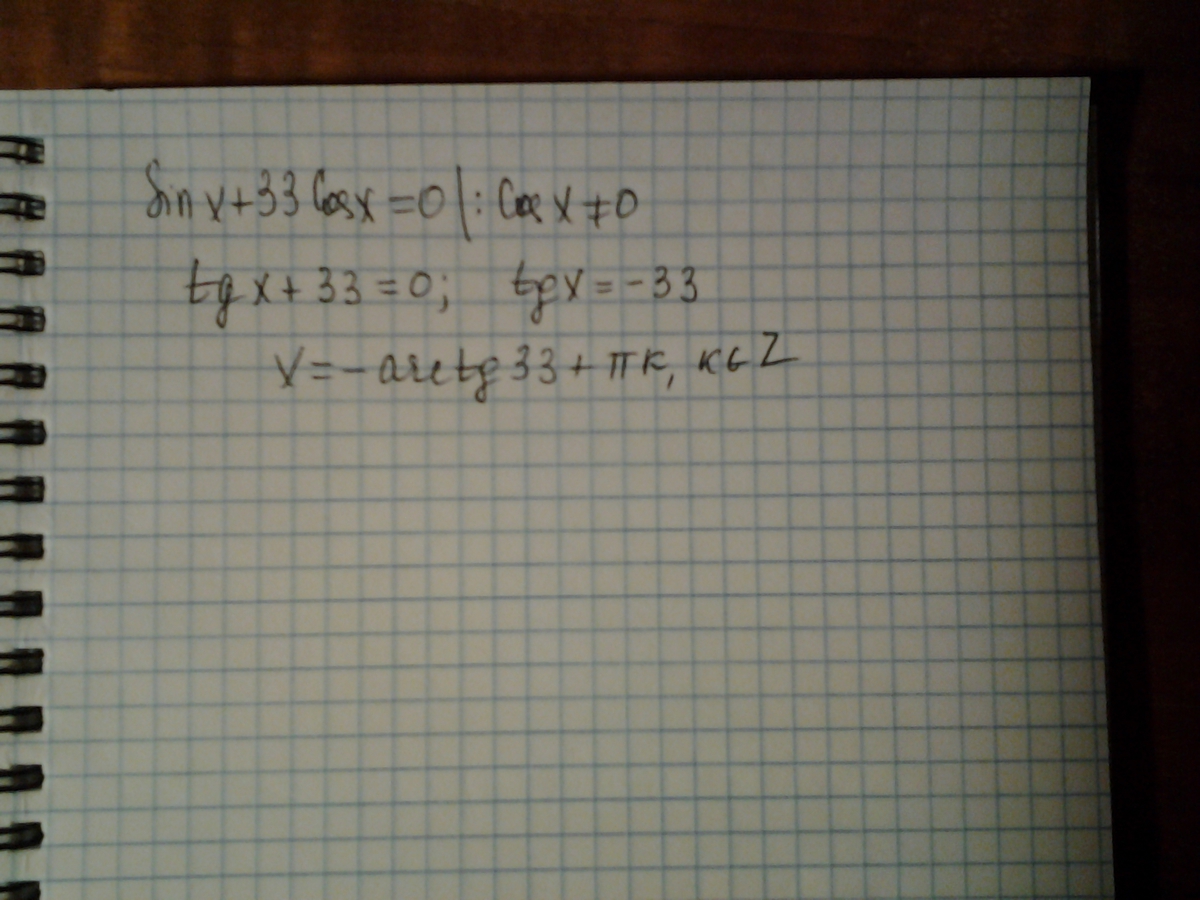 Sin x + 33 Cos x = 0 | : Cos x ≠ 0
tg x + 33 = 0; tg x = -33
x = - arctg 33 + πк, к ∈ Z